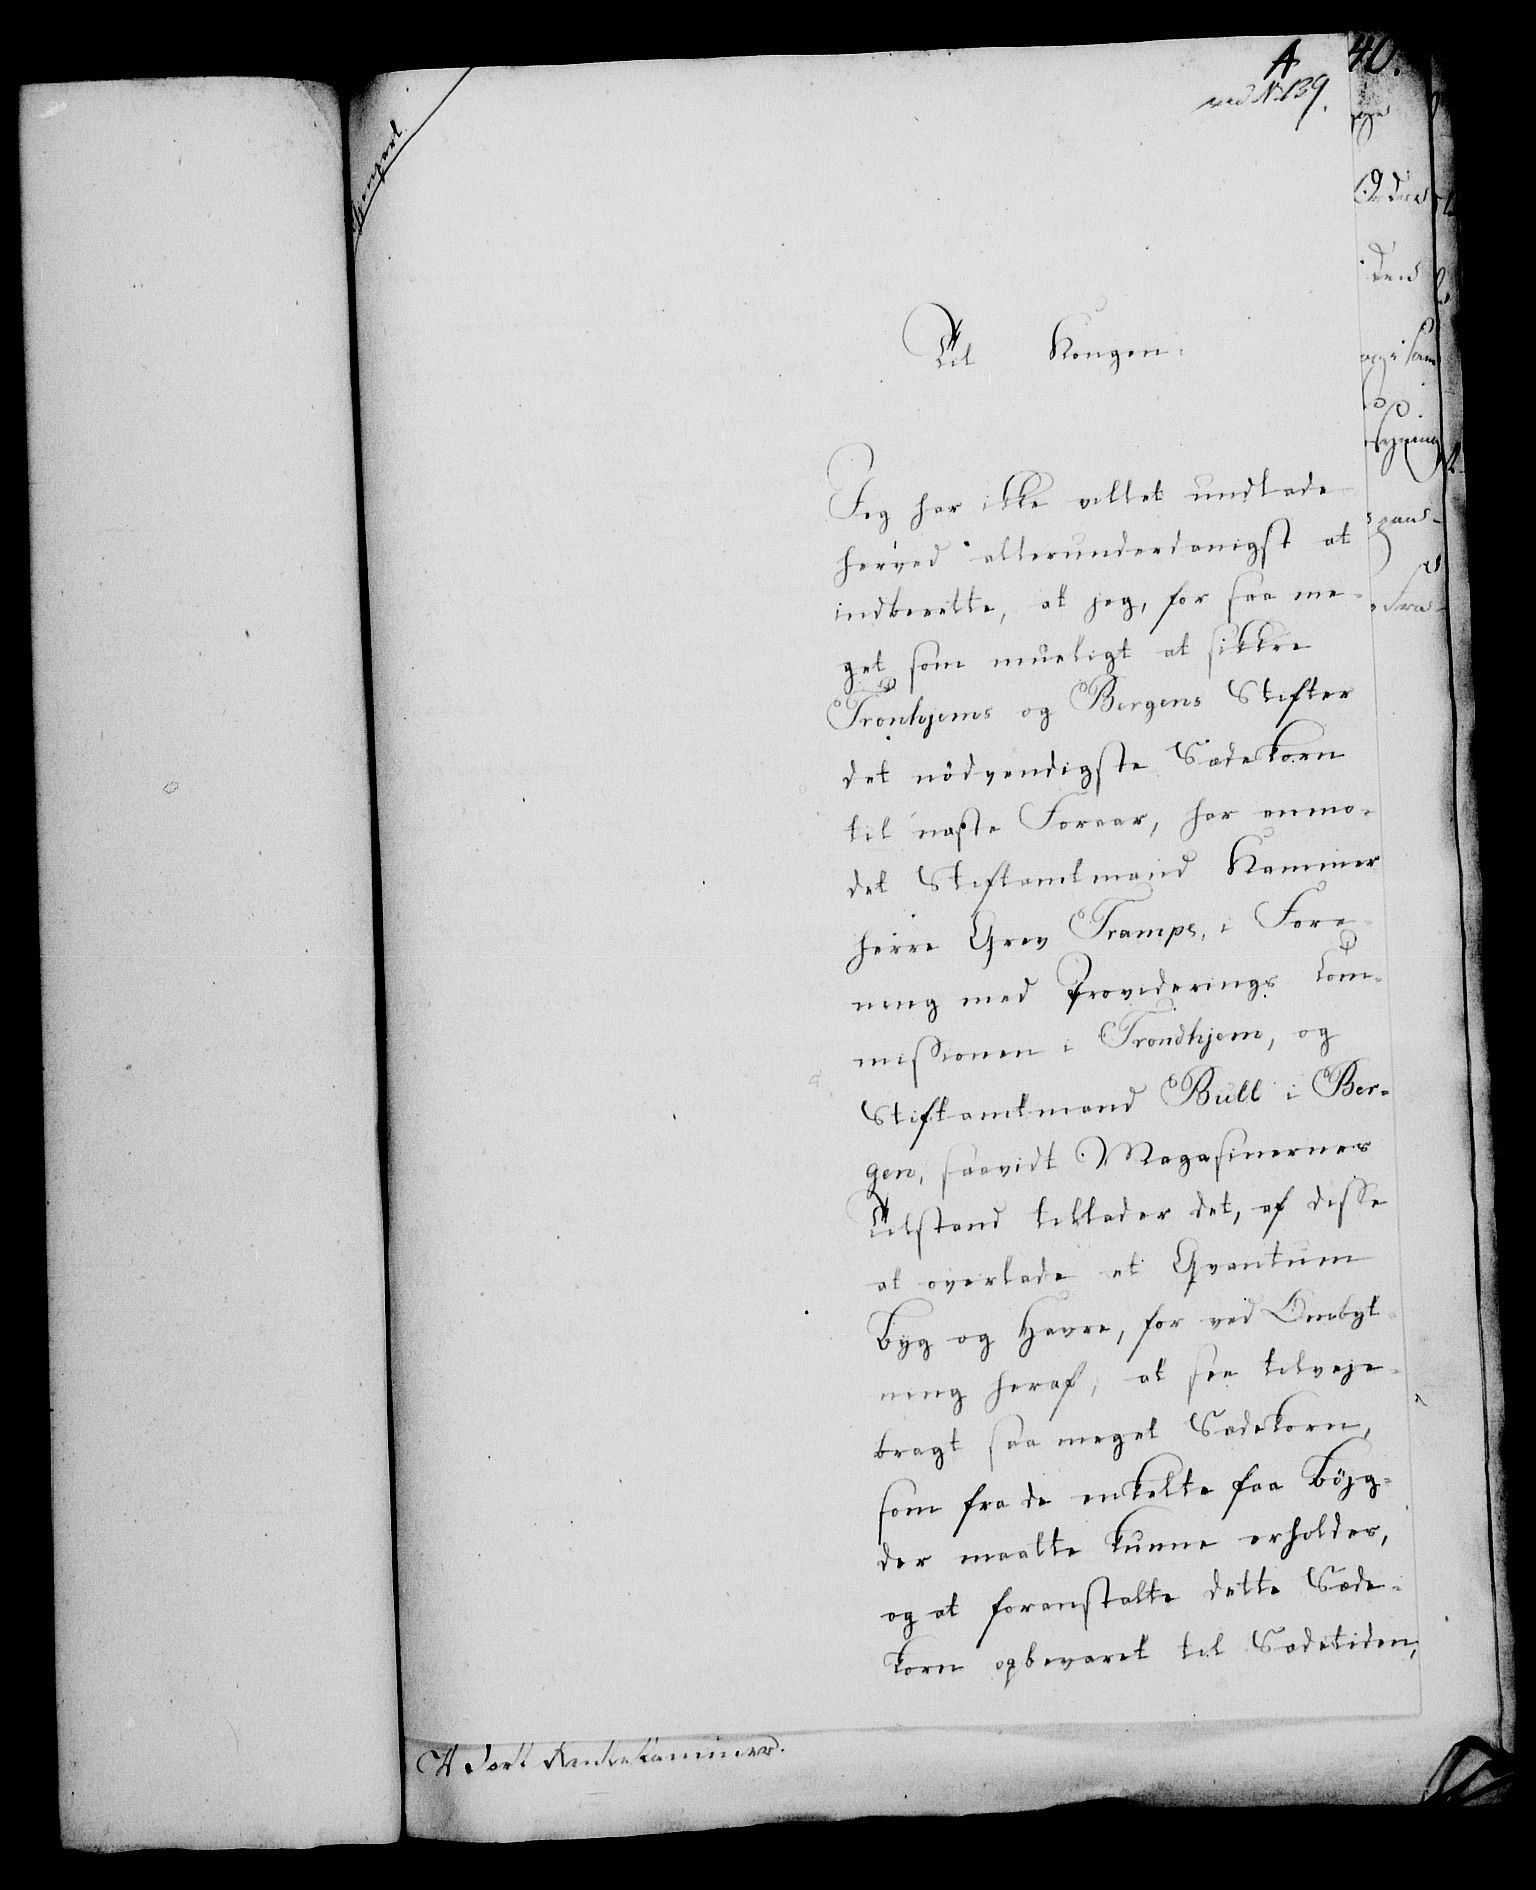 A 40.
ved N. 139.
Gjenpart
Til Kongen.
Jeg har ikke villet undlade
herved allerunderdanigst at
indberette, at jeg, for saa me-
get som mueligt at sikkre
Tronhjems og Bergens Stifter
det nödvendigste Sædekorn
til næste Foraar, har anmo-
det Stiftamtmand Kammer
herre Grev Tramps, i Fore
ning med Provideerings Com-
missionen i Trondhjem, og
Stiftamtmand Bull i Ber-
gen, saavidt Magasinernes
Tilstand tillader det, af disse
at overlade et Qvantum
Byg og Havre, for ved Ombyt-
ning heraf, at see tilveje-
bragt saa meget Sædekorn,
som fra de enkelte faa Böjg-
der maatte kunne erholdes,
og at foranstalte dette Sæde-
korn opbevaret til Sædetiden,
Rentekammer.